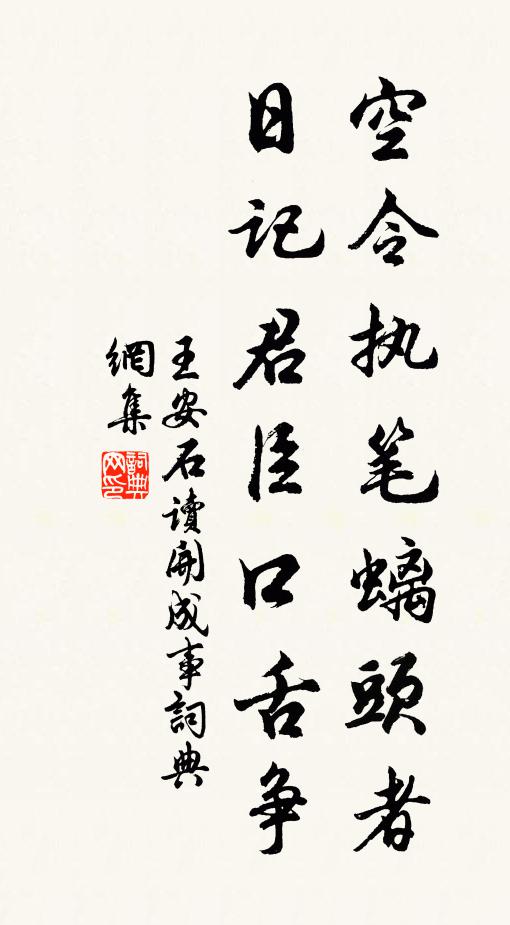 空令执笔螭頭者
日记君臣口舌争
王安石讀開成事詞典
網集
詞典
网印